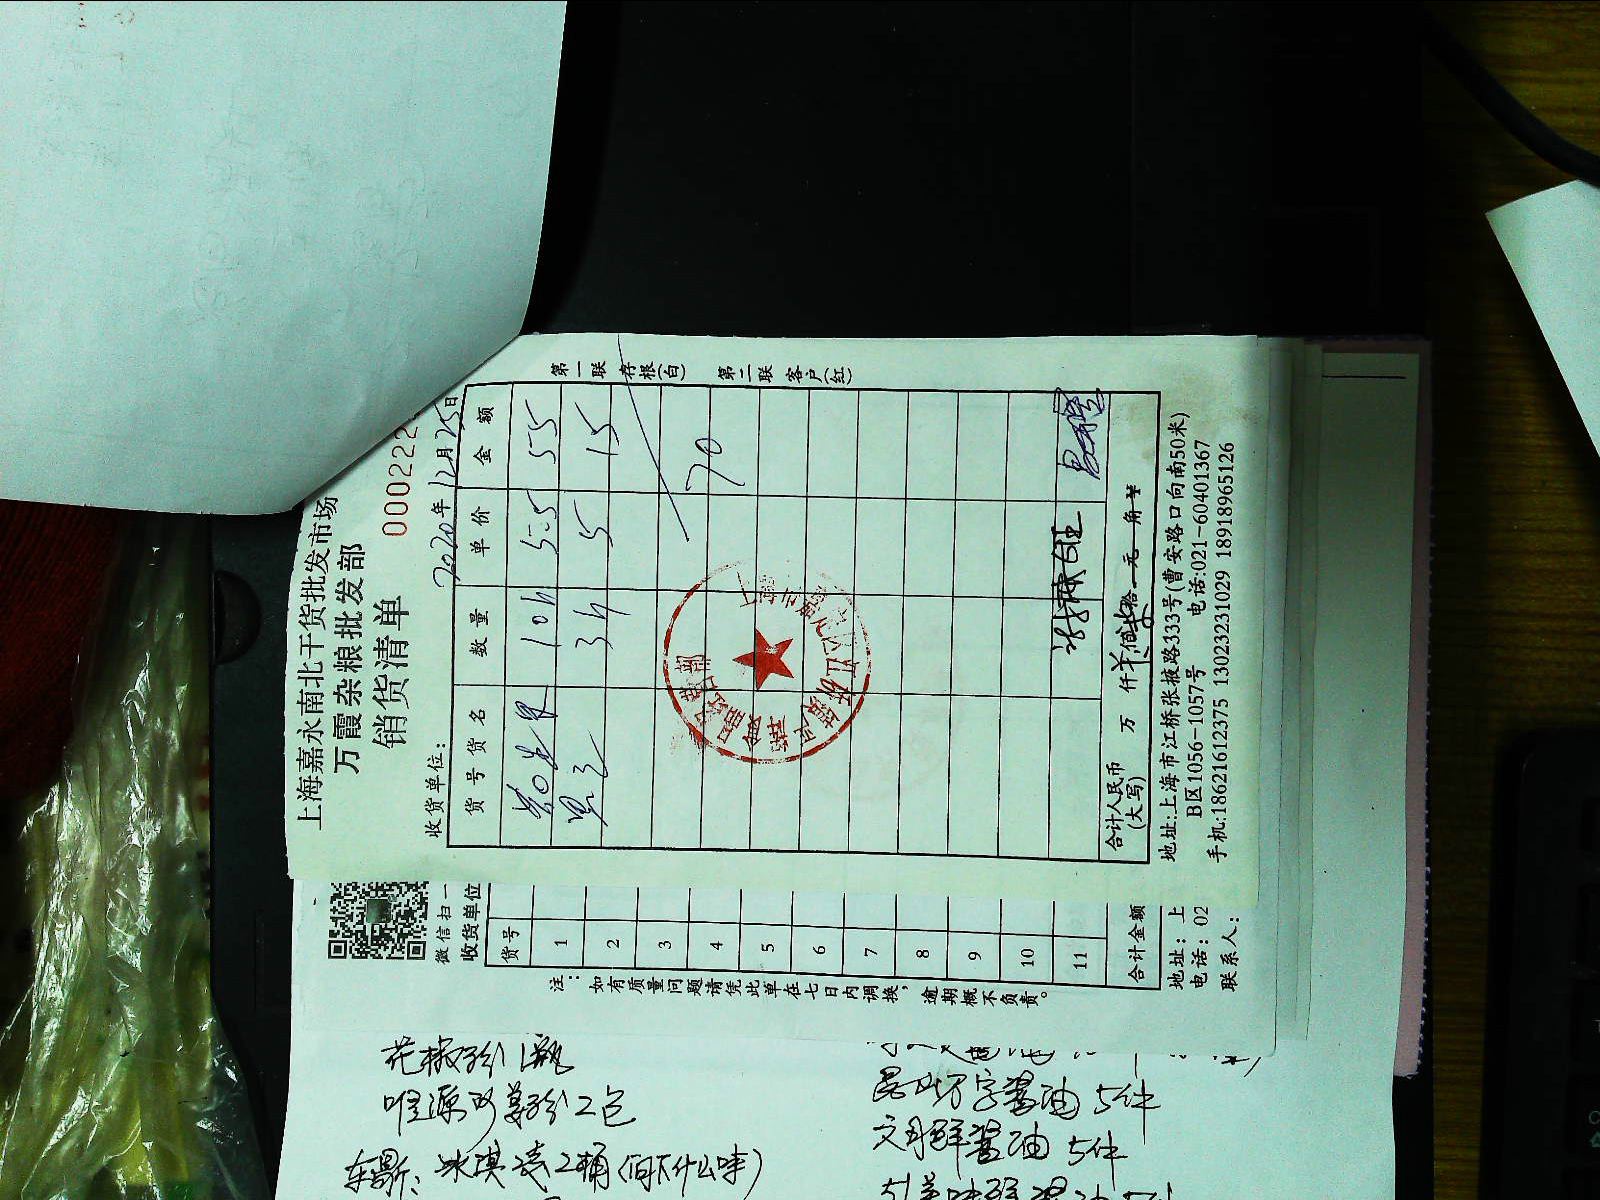 上海嘉永南北干货批发市场
万霞杂粮批发部
销货清单
000222
收货单位:
2020年12月25日
货号货名 数量 单价 金额
10斤 5.5 55
黑豆 3斤 5 15
70
合计人民币(大写) 万 仟 佰 柒拾 元 角 分
地址:上海市江桥张掖路333号(曹安路口向南50米)
B区1056-1057号 电话:021-60401367
手机:18621612375 13023231029 18918965126
第一联 存根(白) 第二联 客户(红)
微信扫一
收货单位
货号
1
2
3
4
5
6
7
8
9
10
11
合计金额
地址: 上
电话: 02
联系人:
注:如有质量问题请凭此单在七日内调换,逾期概不负责。
花椒粉1瓶
2包
冰淇淋2桶(问下什么味)
万字酱油5件
鲜酱油5件